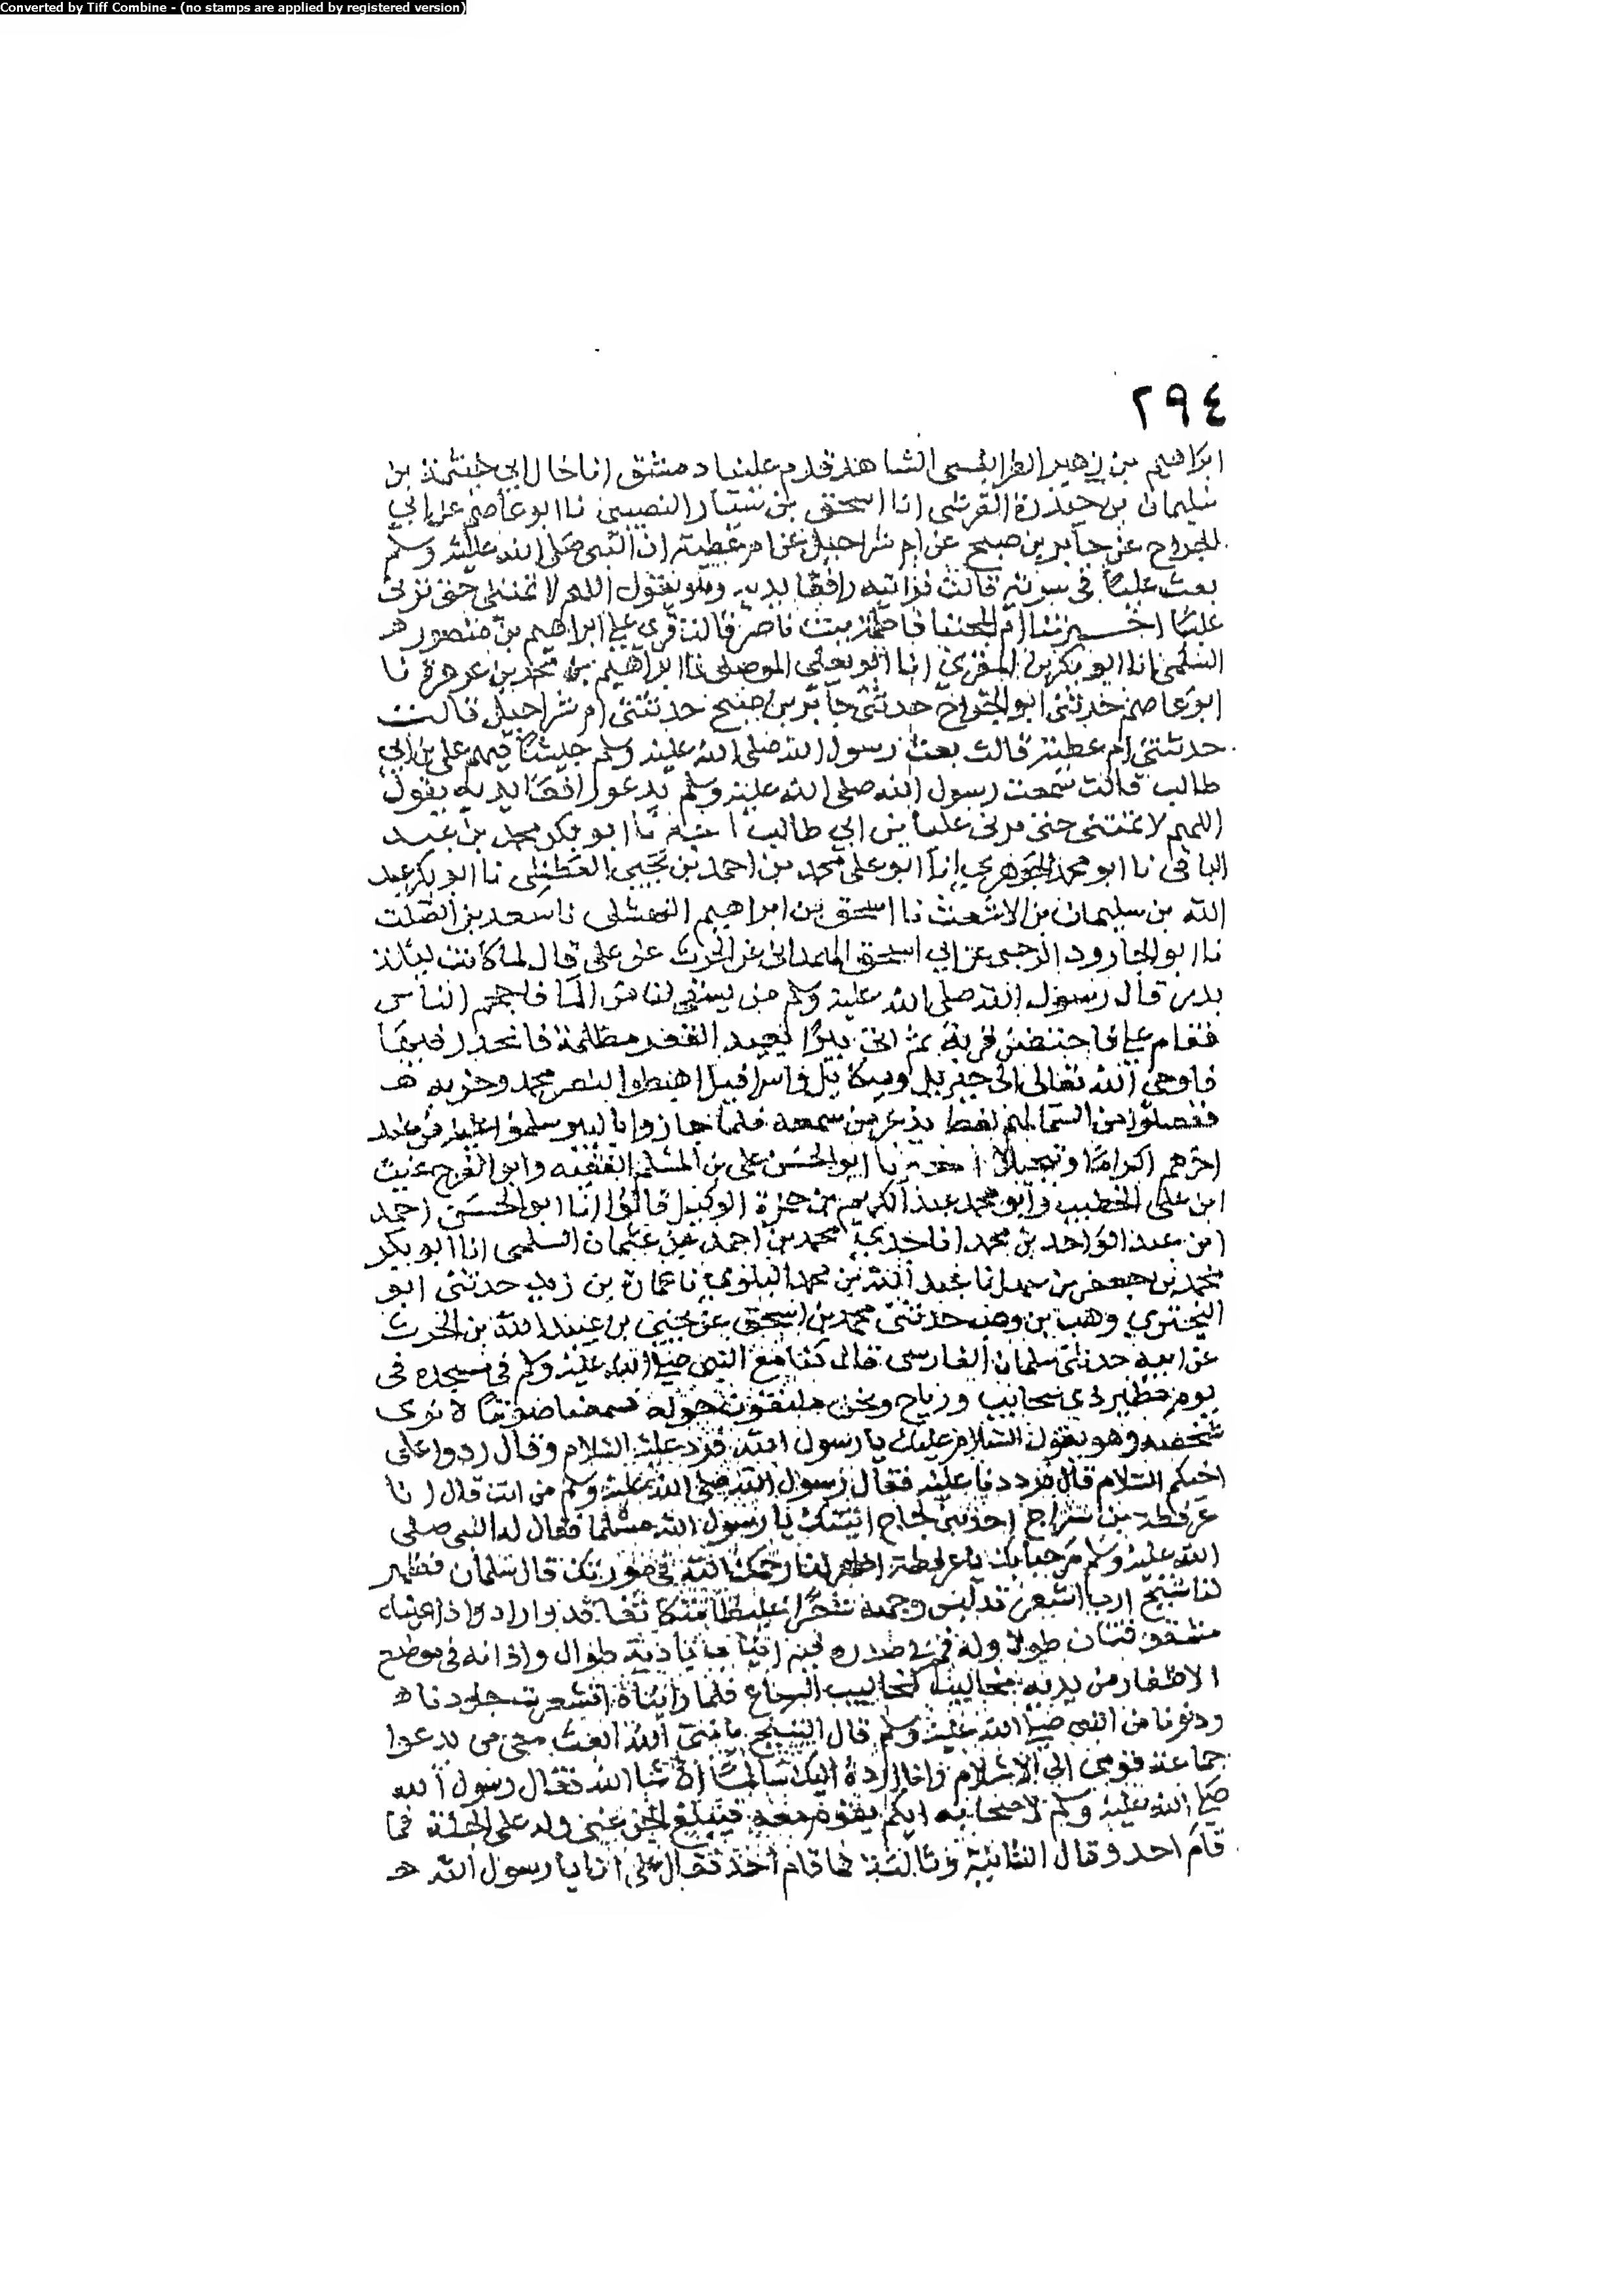 Converted by Tiff Combine - (no stamps are applied by registered version)
٢٩٤
ابراهيم بن زهير الطرابلسى الشاهد قدم علينا دمشق انا خال ابي خيثمة بن
سليمان بن حيدرة القرشى انا اسحق بن سيار النصيبى نا ابو عاصم عن ابي
الجراح عن جابر بن صبح عن ام شراحيل عن ام عطية ان النبى صلى الله عليه وسلم
بعث عليا فى سرية قالت فرايته رافعا يديه وهو يقول اللهم لا تمتنى حتى ترينى
عليا اخبرتنا ام المجتبا فاطمة بنت ناصر قالت قرى على ابراهيم بن منصور ه
السلمى انا ابو بكر بن المقرى انا ابو يعلى الموصلى نا ابراهيم بن محمد بن عرعرة نا
ابو عاصم حدثنى ابو الجراح حدثنى جابر بن صبح حدثتنى ام شراحيل قالت
حدثتنى ام عطية قالت بعث رسول الله صلى الله عليه وسلم جيشا فيهم على بن ابي
طالب قالت سمعت رسول الله صلى الله عليه وسلم يدعو رافعا يديه يقول
اللهم لا تمتنى حتى ترنى عليا بن ابي طالب نا ابو بكر محمد بن عبد
الباقى نا ابو محمد الجوهري انا ابو على محمد بن احمد بن يحيى العطشى نا ابو بكر عبد
الله بن سليمان بن الاشعث نا اسحق بن ابراهيم النهشلى نا سعد بن الصلت
نا ابو الجارود الرحبى عن ابي اسحق الهمدانى عن الحرث عن على قال لما كانت ليلة
بدر قال رسول الله صلى الله عليه وسلم من يستقي لنا من الما فاحجم الناس
فقام على فاحتضن قربة ثم اتى بيرا بعيد القعر مظلمة فانحدر فيها
فاوحى الله تعالى الى جبريل وميكائيل واسرافيل اهبطوا لنصر محمد وحزبه ه
ففصلوا من السما لهم لغط يذعر من سمعه فلما جازوا بالبير سلموا عليه من عند
اخرهم اكراما وتبجيلا نا ابو الحسن على بن المسلم الفقيه وابو الفرج غيث
ابن على الخطيب وابو محمد عبد الكريم بن حمزة الوكيل قالوا انا ابو الحسن احمد
ابن عبد الواحد بن محمد انا جدي محمد بن احمد بن عثمان السلمى انا ابو بكر
محمد بن جعفر بن انا عبد الله بن محمد البلوي نا عمارة بن زيد حدثنى ابو
البختري وهب بن وهب حدثنى محمد بن اسحق عن يحيى بن عبد الله بن الحرث
عن ابيه حدثنى سلمان الفارسى قال كنا مع النبى صلى الله عليه وسلم فى مسجده فى
يوم مطير ذي سحايب ورياح ونحن ملتفون حوله فسمعنا صوتا لا نرى
شخصه وهو يقول السلام عليك يا رسول الله فرد عليه السلام وقال ردوا على
اخيكم السلام قال فرددنا عليه فقال رسول الله صلى الله عليه وسلم من انت قال انا
عرفطة بن شراح احد بنى نجاح اتيتك يا رسول الله مسلما فقال له النبى صلى
الله عليه وسلم مرحبا بك يا عرفطة اظهر لنا رحمك الله فى صورتك قال سلمان فظهر
لنا شيخ ارب اشعر قد لبس وجهه شعرا غليظا متكاثفا قد واراه واذا عيناه
مشقوقتان طولا وله فم فى صدره فيه انياب بادية طوال واذا له فى موضع
الاظفار من يديه مخاليب كمخاليب السباع فلما رايناه اقشعرت جلودنا ه
ودنونا من النبى صلى الله عليه وسلم قال الشيخ يا نبى الله ابعث معى من يدعوا
جماعة قومى الى الاسلام وانا ارده اليك سالما ان شا الله فقال رسول الله
صلى الله عليه وسلم لاصحابه ايكم يقوم معه فيبلغ الجن عنى وله على الجنة فما
قام احد وقال الثانية وثالثة فما قام احد فقال على انا يا رسول الله ه